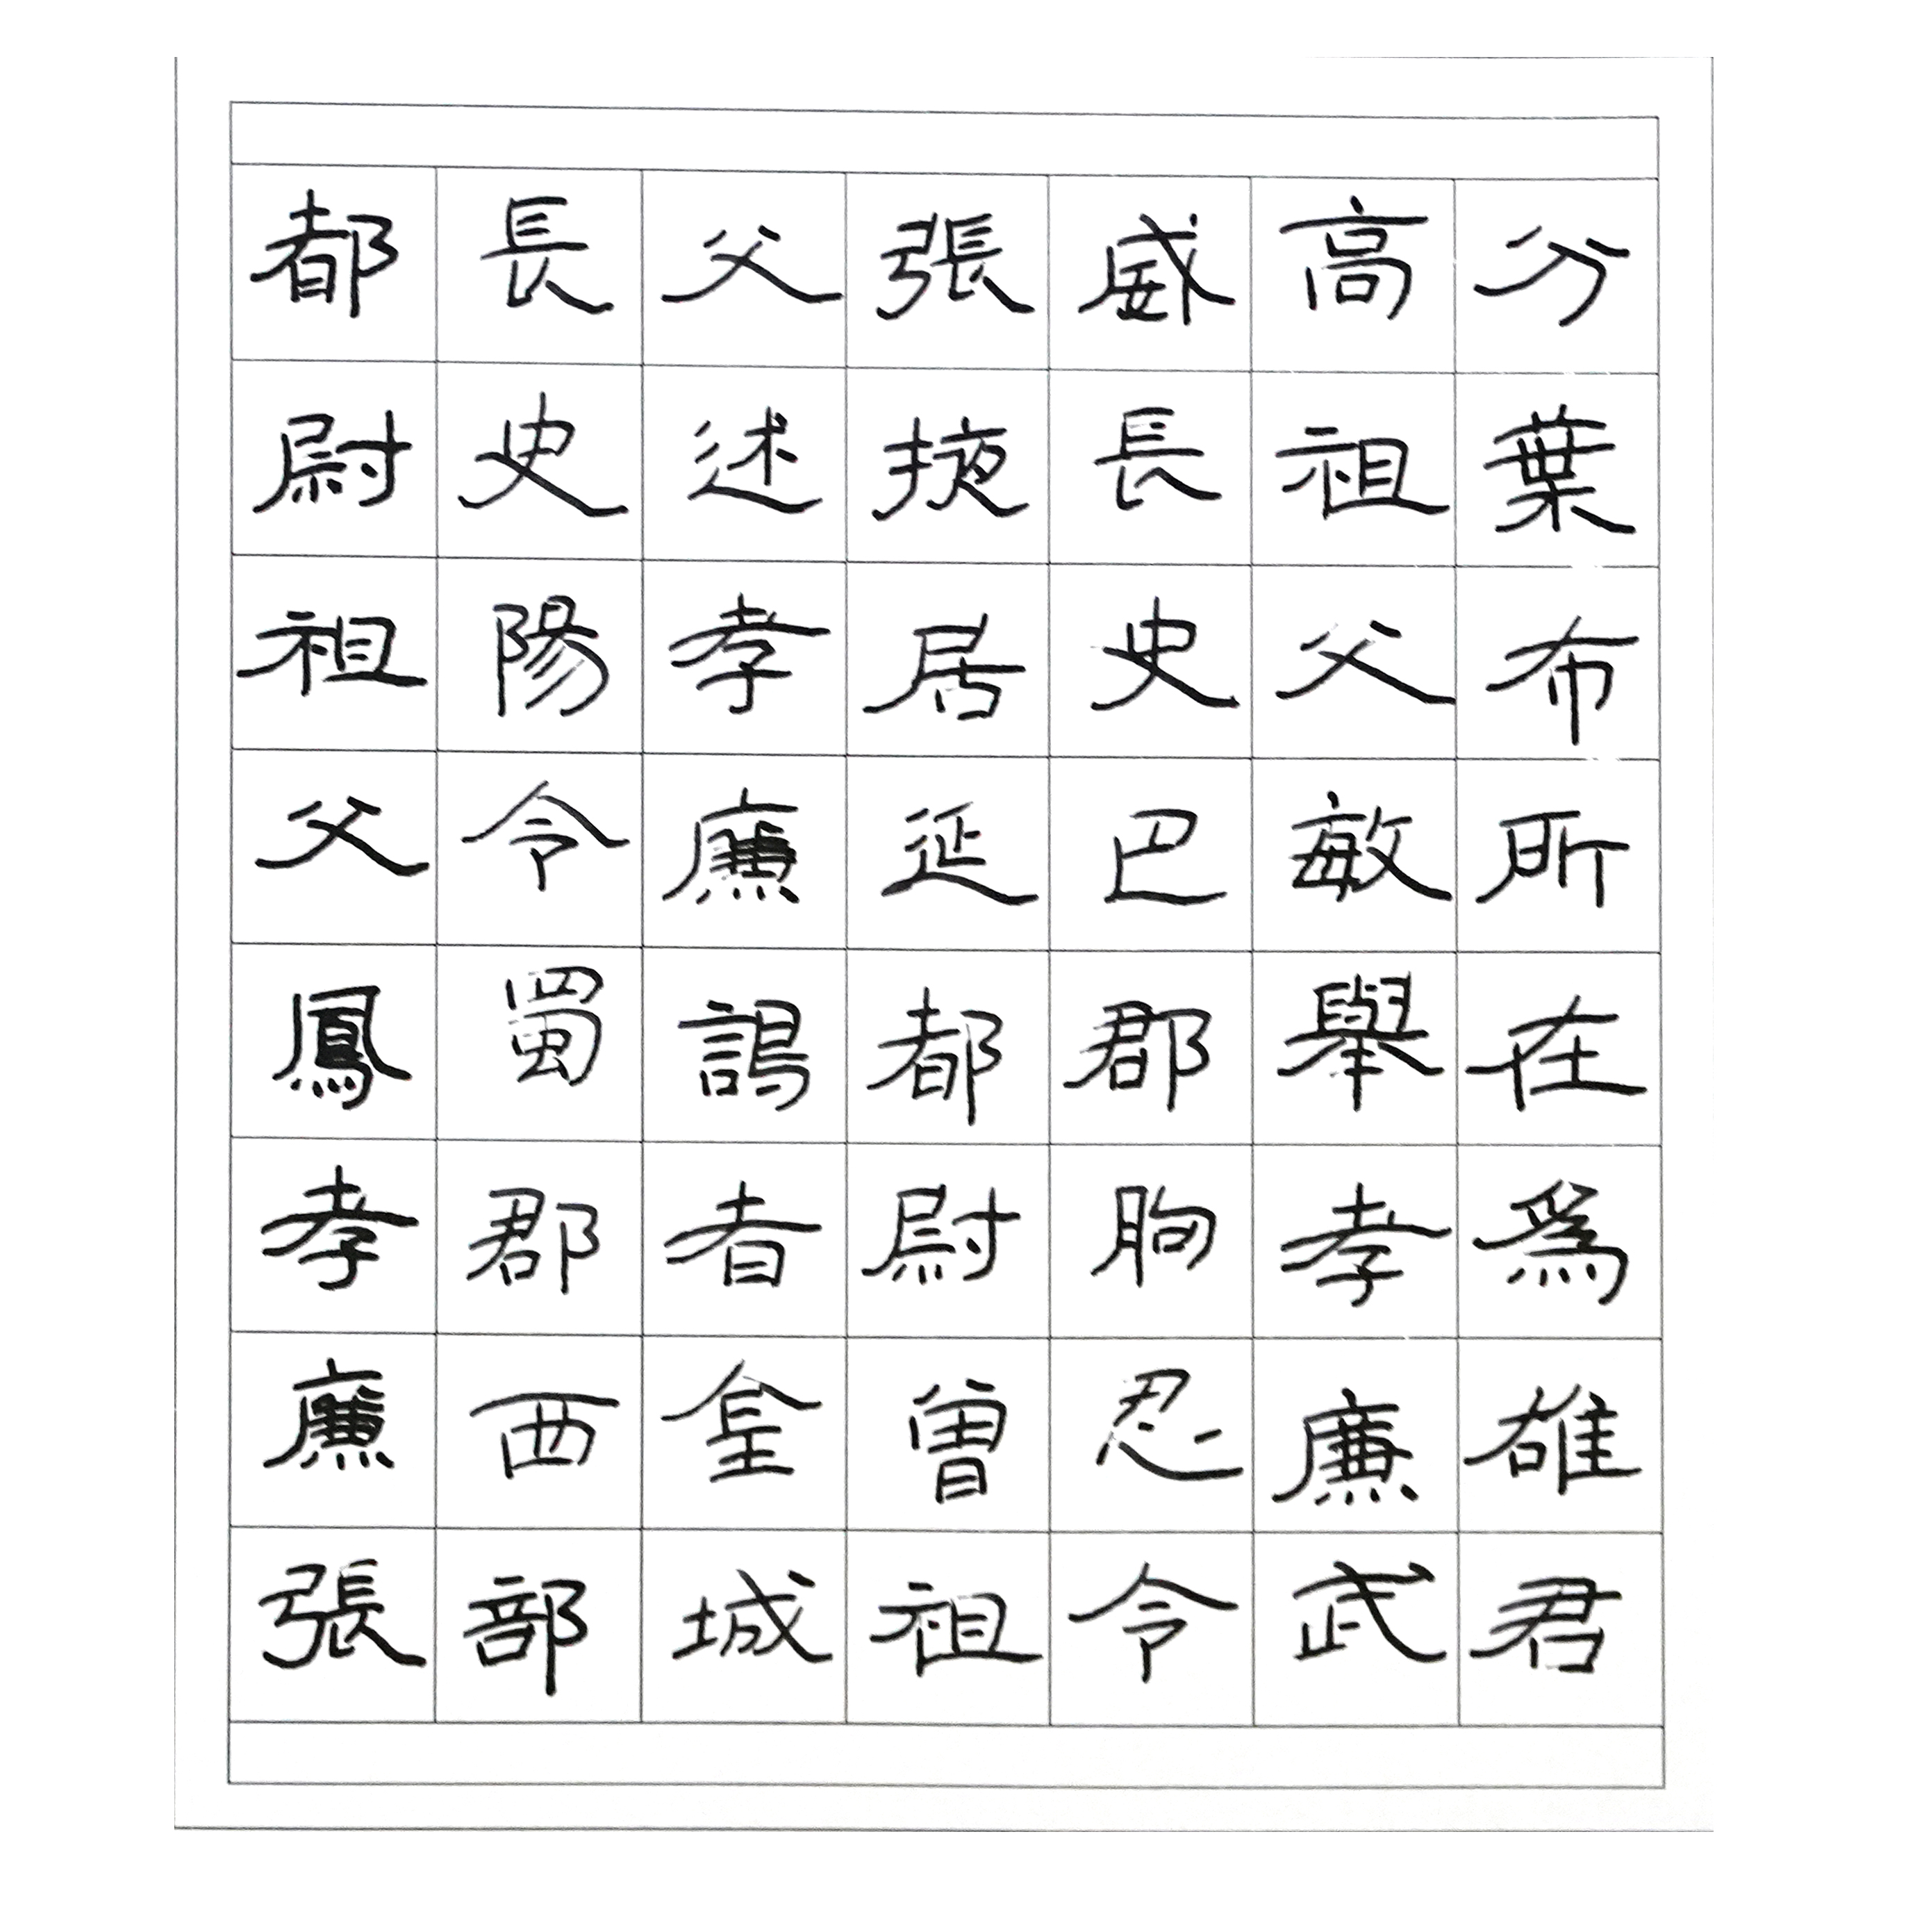 分葉布所在爲雄君
高祖父敏舉孝廉武
威長史巴郡朐忍令
張掖居延都尉曾祖
父述孝廉謁者金城
長史陽令蜀郡西部
都尉祖父鳳孝廉張